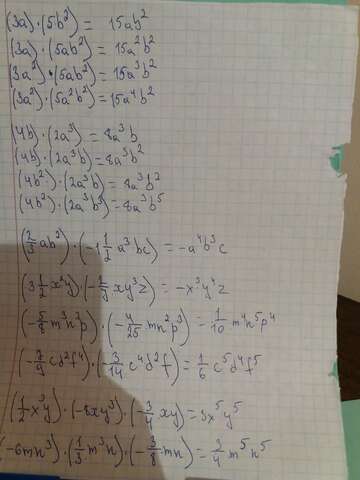 (3a)·(5b²) = 15ab²
(3a)·(5ab²) = 15a²b²
(3a²)·(5ab²) = 15a³b²
(3a²)·(5a²b²) = 15a⁴b²
(4b)·(2a³) = 8a³b
(4b)·(2a³b) = 8a³b²
(4b²)·(2a³b) = 8a³b²
(4b²)·(2a³b³) = 8a³b⁵
(2/3 ab²)·(-1 1/2 a³bc) = -a⁴b³c
(3 1/2 x²y)·(-2/7 xy³z) = -x³y⁴z
(-5/8 m³n²p)·(-4/25 mn²p³) = 1/10 m⁴n⁵p⁴
(-7/9 cd²f⁴)·(-3/14 c⁴d²f) = 1/6 c⁵d⁴f⁵
(1/2 x³y)·(-8xy³)·(-3/4 xy) = 3x⁵y⁵
(-6mn³)·(1/3 m³n)·(-3/8 mn) = 3/4 m⁵n⁵